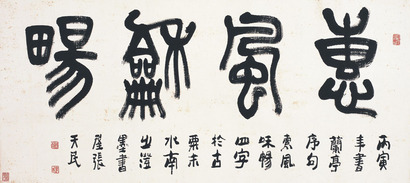 惠風龢畼
丙寅
年書
蘭亭
序句
惠風
咊暢
四字
於古
粟末
水南
㞢澄
墨書
屋張
天民